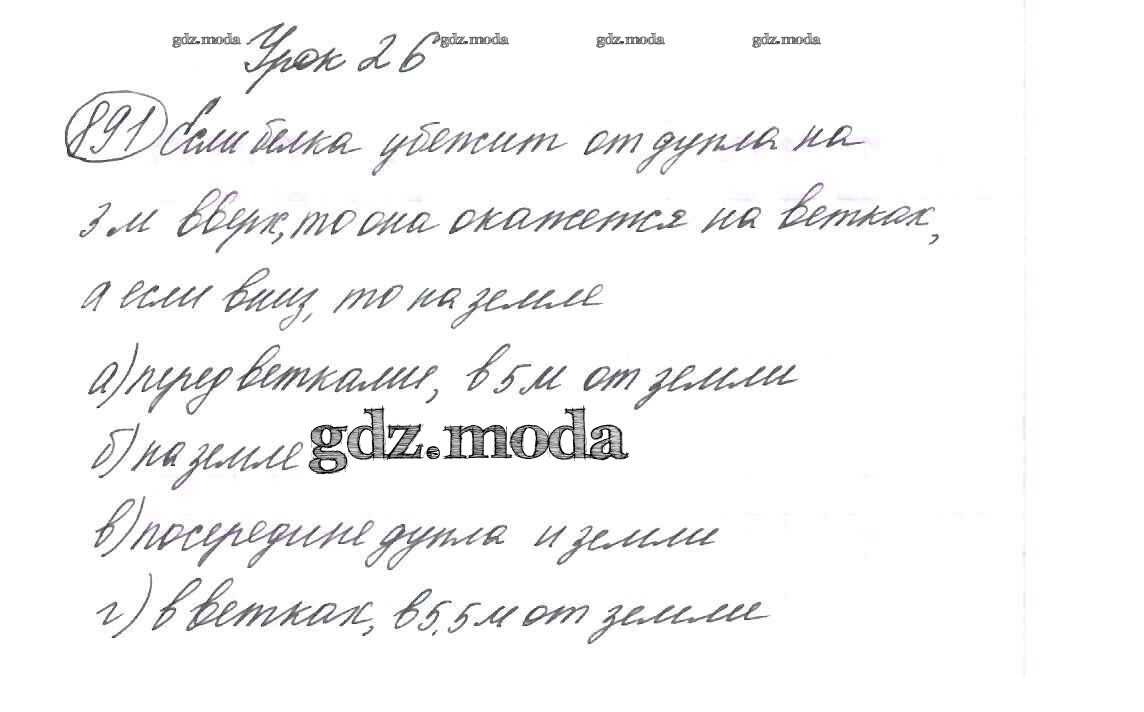 gdz.moda gdz.moda gdz.moda gdz.moda
Урок 26
891 Если белка убежит от дупла на
3 м вверх, то она окажется на ветках,
а если вниз, то на земле
а) перед ветками, в 5 м от земли
б) на земле gdz.moda
в) посередине дупла и земли
г) в ветках, в 5,5 м от земли